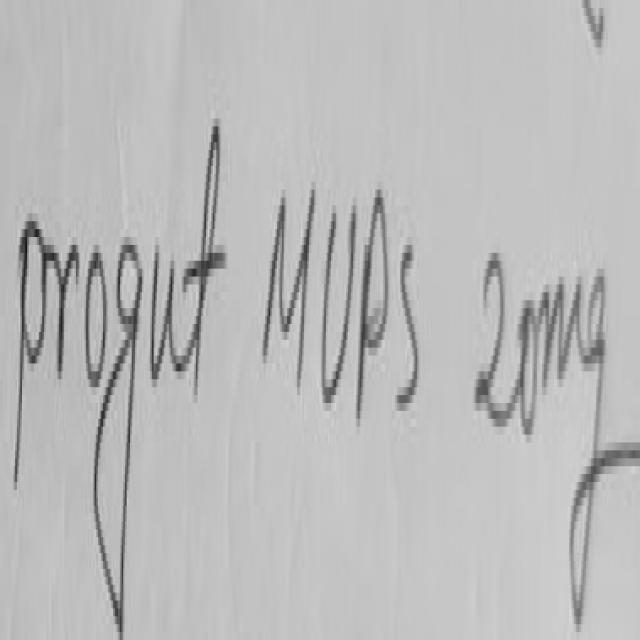 progut MUPS 20mg